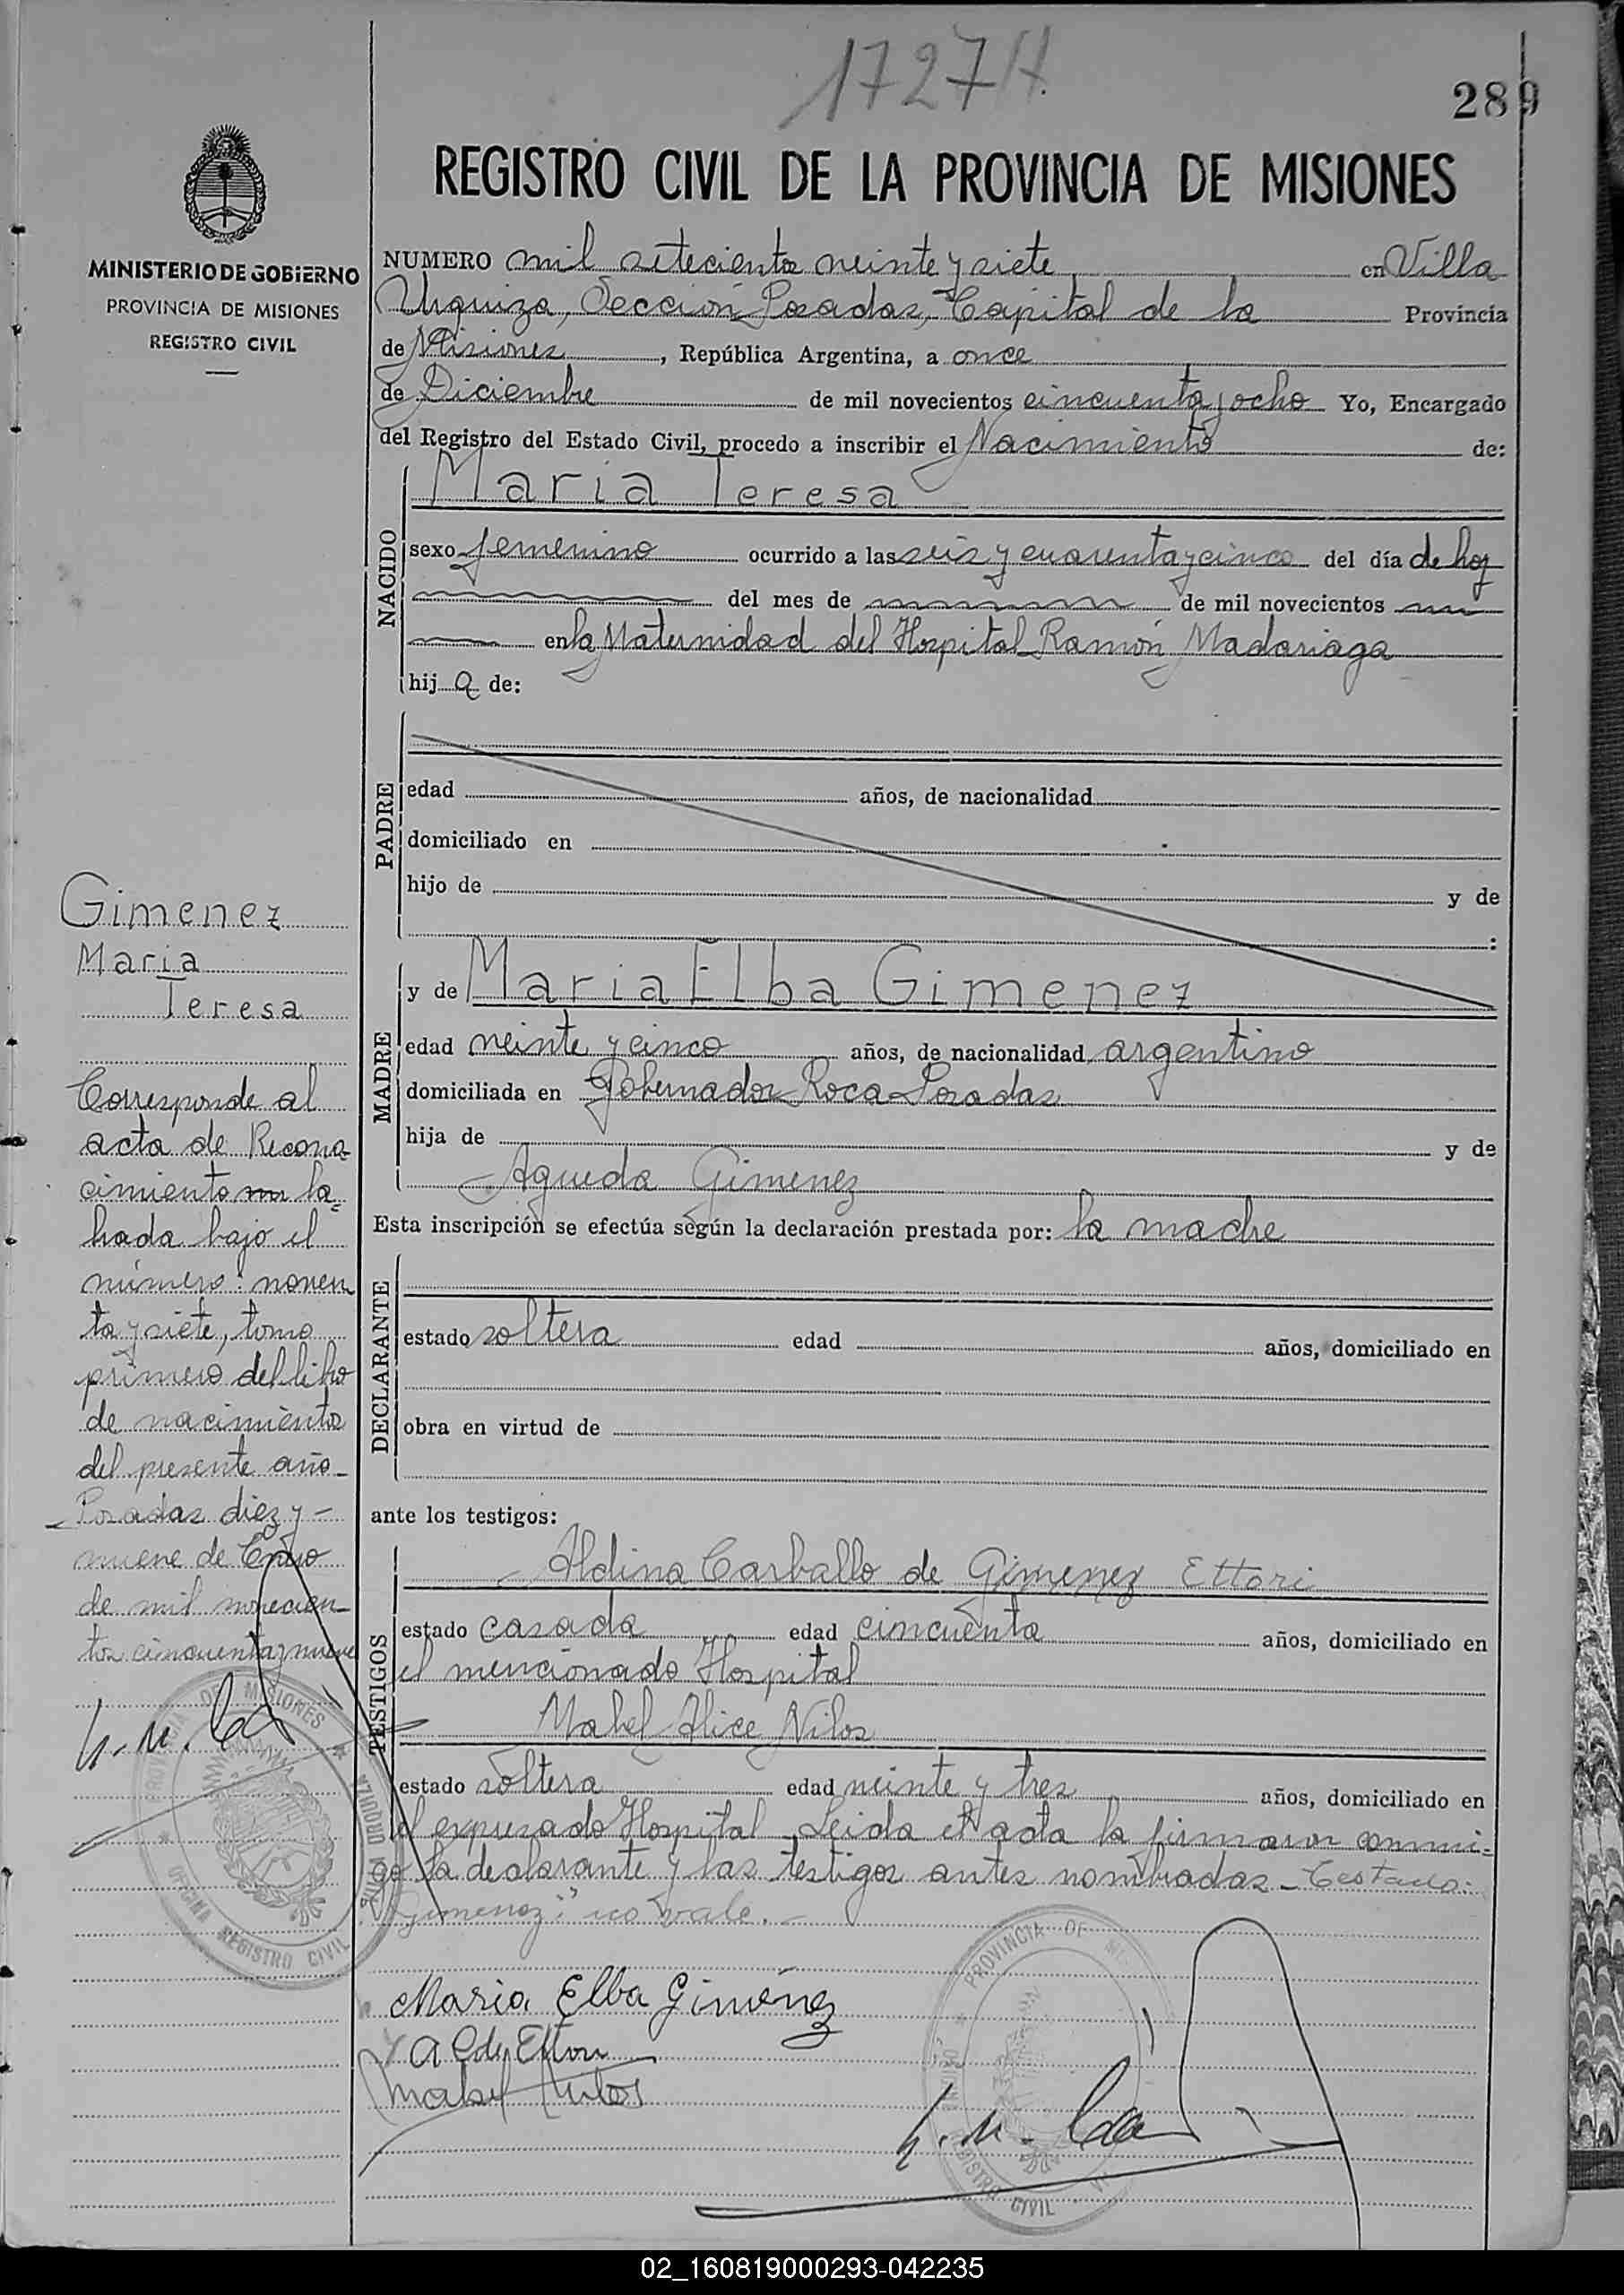 1727 H.
289
REGISTRO CIVIL DE LA PROVINCIA DE MISIONES
MINISTERIO DE GOBIERNO
PROVINCIA DE MISIONES
REGISTRO CIVIL
NUMERO mil setecientos veinte y siete en Villa
Urquiza, Sección Posadas, Capital de la Provincia
de Misiones, República Argentina, a once
de Diciembre de mil novecientos cincuenta y ocho Yo, Encargado
del Registro del Estado Civil, procedo a inscribir el Nacimiento de:
Maria Teresa
NACIDO
sexo femenino ocurrido a las seis y cuarenta y cinco del día de hoy
del mes de de mil novecientos
en la Maternidad del Hospital Ramón Madariaga
hij a de:
PADRE
edad años, de nacionalidad
domiciliado en
hijo de y de
:
y de Maria Elba Gimenez
MADRE
edad veinte y cinco años, de nacionalidad argentino
domiciliada en Gobernador Roca Posadas
hija de y de
Agueda Gimenez
Esta inscripción se efectúa según la declaración prestada por: la madre
DECLARANTE
estado soltera edad años, domiciliado en
obra en virtud de
ante los testigos:
TESTIGOS
Aldina Carballo de Gimenez Ettori
estado casada edad cincuenta años, domiciliado en
el mencionado Hospital
Mabel Alice Nilos
estado soltera edad veinte y tres años, domiciliado en
el expresado Hospital. Leida el acta la firmaron conmi-
go la declarante y las testigos antes nombradas. Testado:
"Gimenez": no vale.-
Maria Elba Giménez
A C de Ettori
Mabel Nilos
Gimenez
Maria
Teresa
Corresponde al
acta de Recono
cimiento la=
brada bajo el
número: noven
ta y siete, tomo
primero del libro
de nacimientos
del presente año-
Posadas diez y -
nueve de Enero
de mil novecien-
tos cincuenta y nueve
PROVINCIA DE MISIONES
OFICINA REGISTRO CIVIL
VILLA URQUIZA
PROVINCIA DE MI
REGISTRO CIVIL
02_160819000293-042235